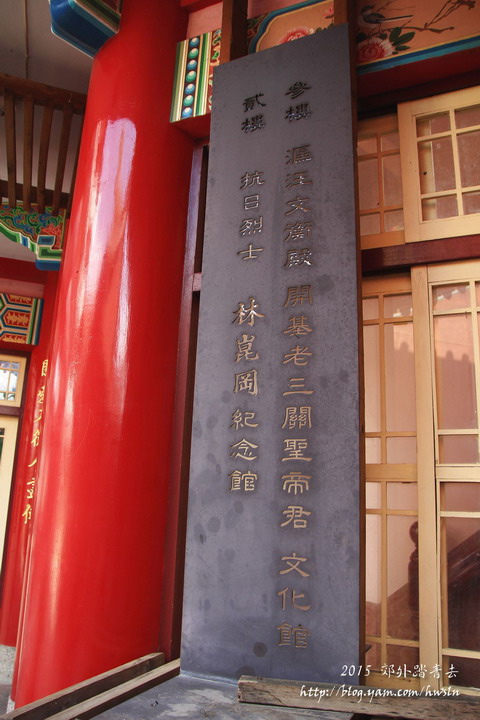 參樓 漚汪文衡殿 開基老三關聖帝君 文化館
貳樓 抗日烈士 林崑岡紀念館
2015 郊外踏青去
http://blog.yam.com/hwsln